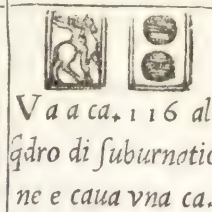 V a a ca. 116 al
q̃dro di ſuburnatio
ne e caua vna ca.